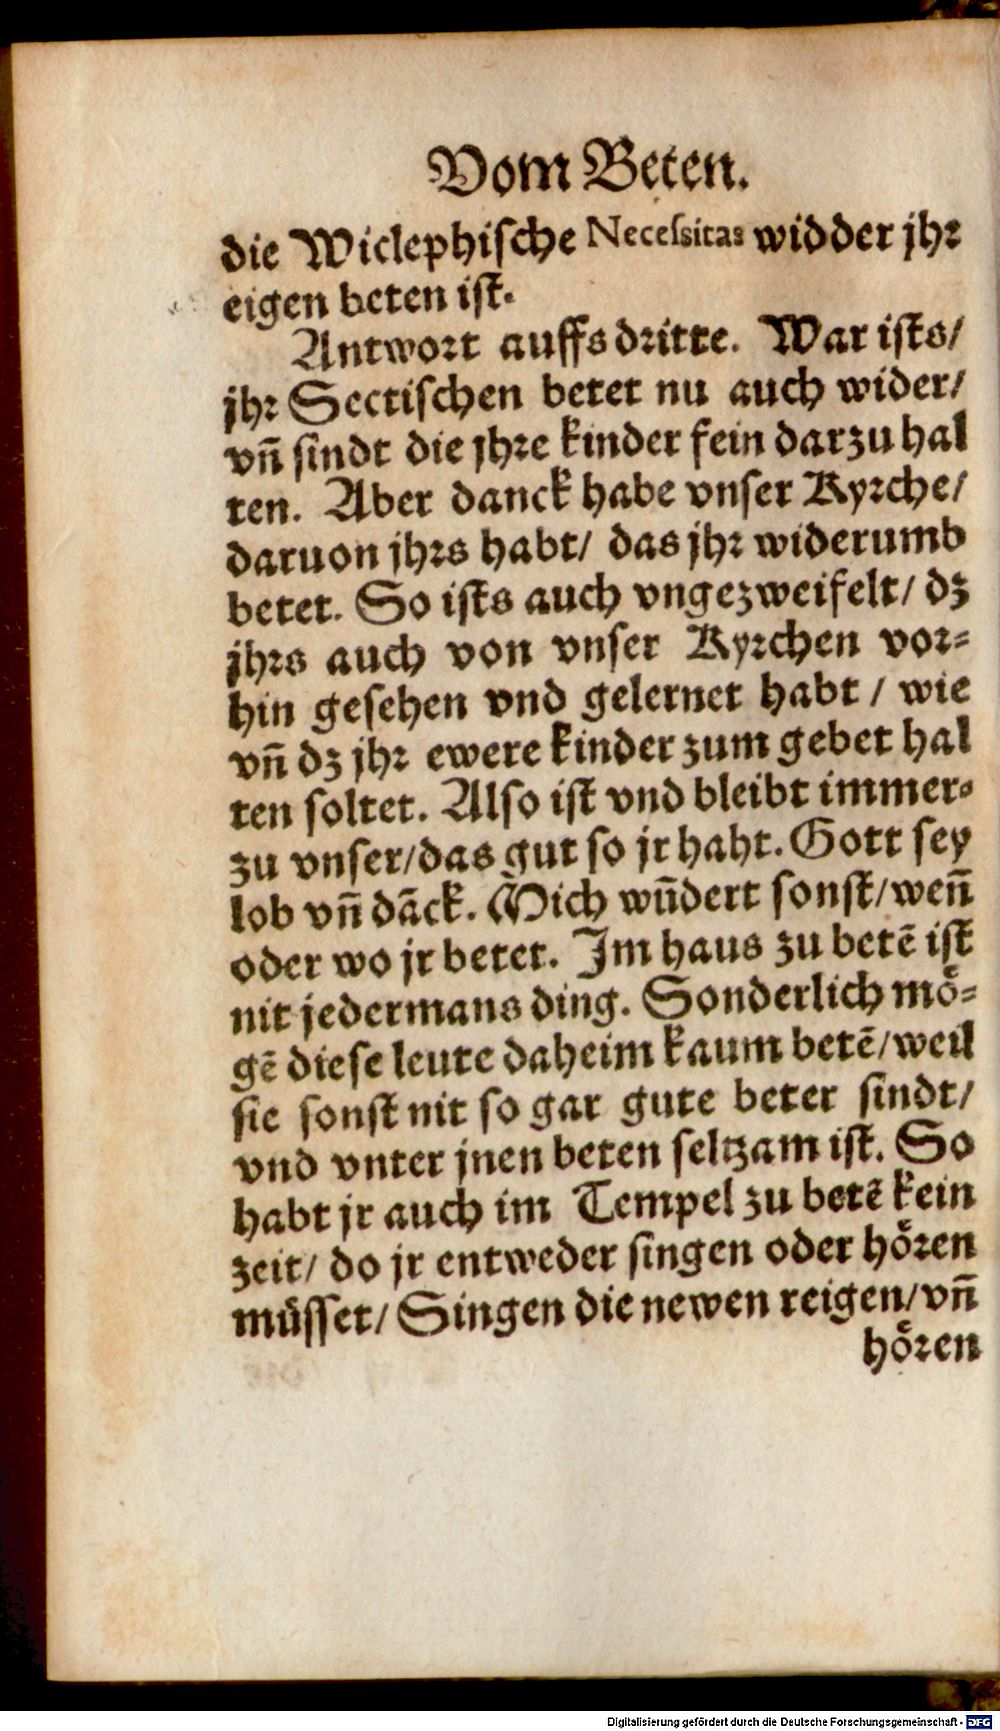 Vom Beten.
die Wiclephische Necessitas widder jhr
eigen beten ist.
Antwort auffs dritte. War ists/
jhr Sectischen betet nu auch wider/
vñ sindt die jhre kinder fein darzu hal
ten. Aber danck habe vnser Kyrche/
daruon jhrs habt/ das jhr widerumb
betet. So ists auch vngezweifelt/ dz
jhrs auch von vnser Kyrchen vor-
hin gesehen vnd gelernet habt / wie
vñ dz jhr ewere kinder zum gebet hal
ten soltet. Also ist vnd bleibt immer-
zu vnser/das gut so jr haht. Gott sey
lob vñ dãck. Mich wũdert sonst/weñ
oder wo jr betet. Im haus zu betẽ ist
nit jedermans ding. Sonderlich mö-
gẽ diese leute daheim kaum betẽ/weil
sie sonst nit so gar gute beter sindt/
vnd vnter jnen beten seltzam ist. So
habt jr auch im Tempel zu betẽ kein
zeit/ do jr entweder singen oder hören
müsset/ Singen die newen reigen/vñ
hören
Digitalisierung gefördert durch die Deutsche Forschungsgemeinschaft - DFG